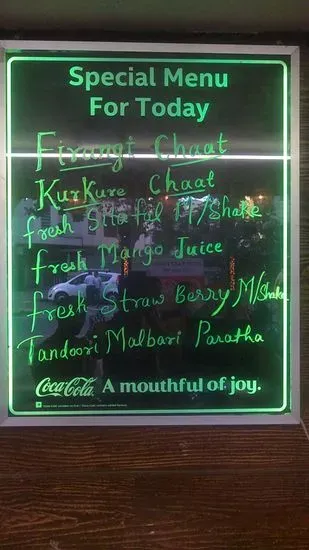 Special Menu
For Today
Firangi Chaat
KurKure Chaat
fresh Sitafal M/Shake
fresh Mango Juice
fresh Straw Berry M/Shake
Tandoori Malbari Paratha
Coca-Cola A mouthful of joy.